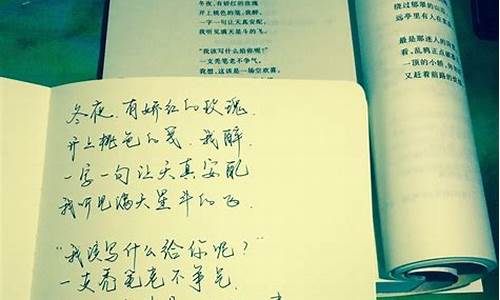 冬夜，有娇红的玫瑰
开上桃色的笺，我醉，
一字一句让天真安配，
我听见满天星斗的飞。
“我该写什么给你呢？”
一支秃笔老不争气，
我想，这该是一场空欢喜，
绕过郁翠的山
远亭里有人在
最是那迷人的
看，乱鸦正点破
一顶的小轿，
又赶着前路的
冬夜，有娇红的玫瑰，
开上桃色的笺，我醉，
一字一句让天真安配
我听见满天星斗的飞．
“我该写什么给你呢？”
一支秃笔老不争气，